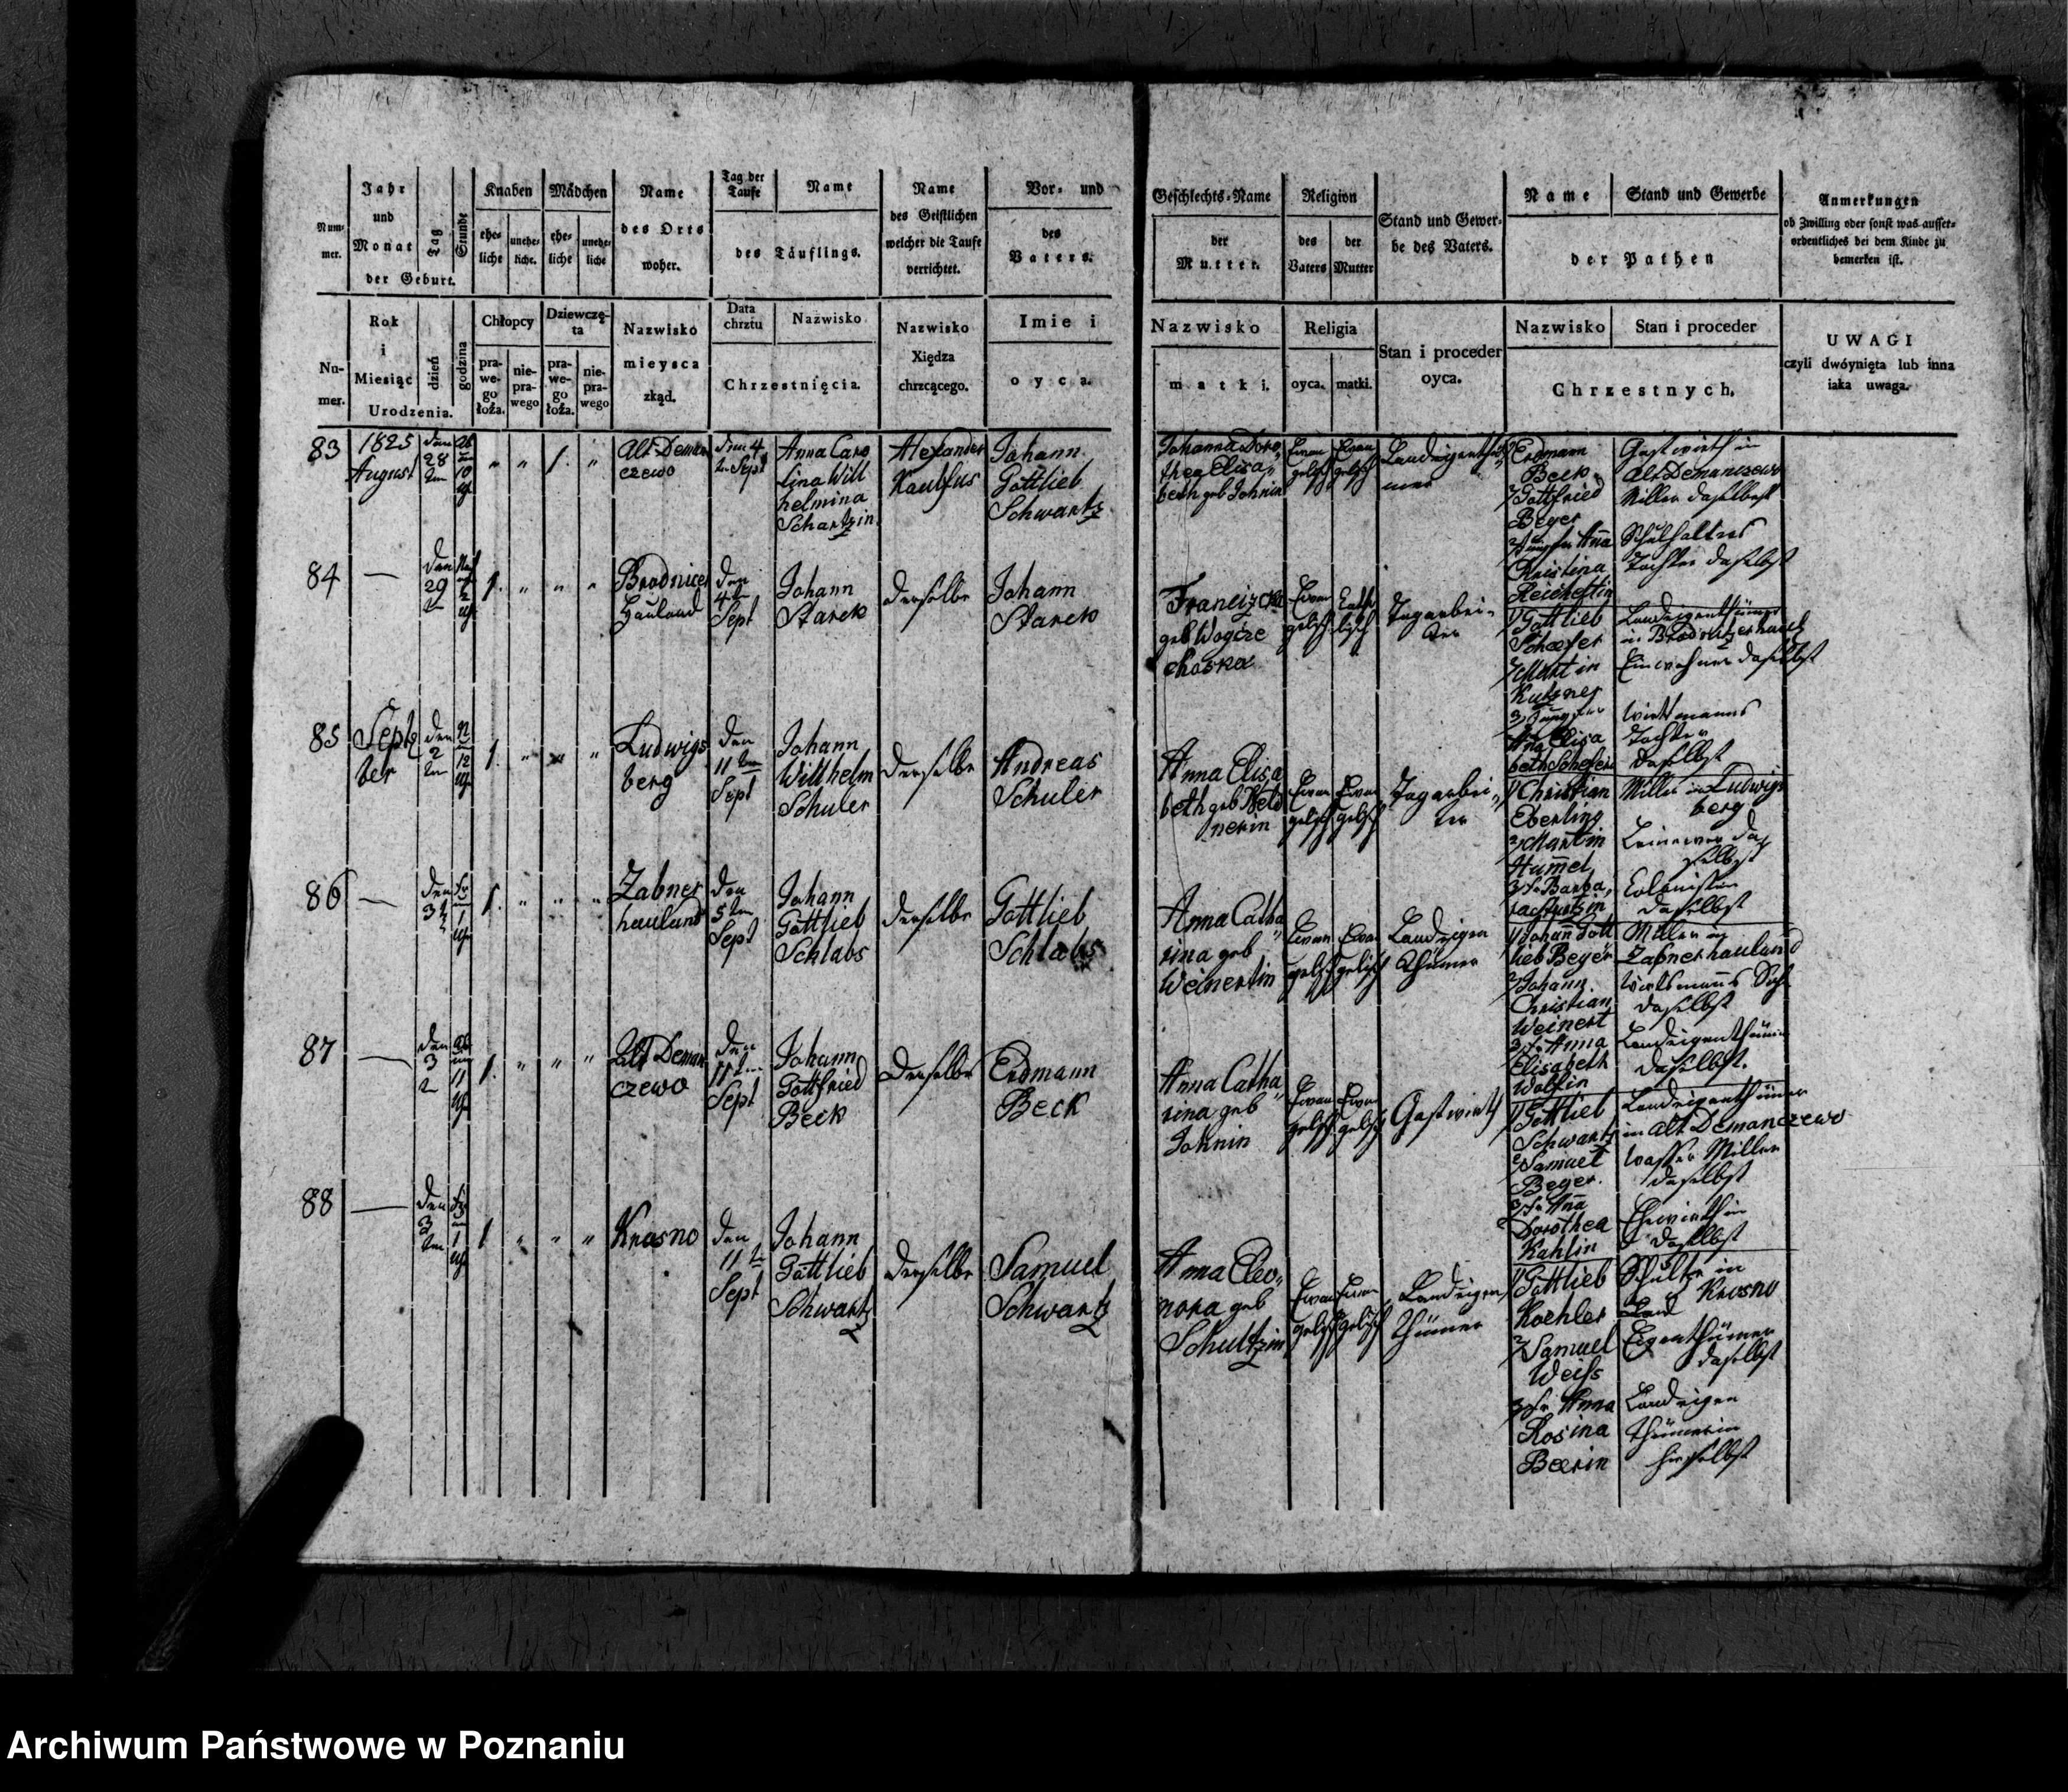 Num-
mer.
Jahr
und
Monat
der Geburt.
Tag
Stunde
Knaben
ehe-
liche
unehe-
liche.
Mädchen
ehe-
liche
unehe-
liche
Name
des Orts
woher.
Tag der
Taufe
Name
des Täuflings.
Name
des Geistlichen
welcher die Taufe
verrichtet.
Vor- und
des
Vaters.
Geschlechts-Name
der
Mutter.
Religion
des
Vaters
der
Mutter
Stand und Gewer-
be des Vaters.
Name
Stand und Gewerbe
der Pathen
Anmerkungen
ob Zwilling oder sonst was ausser-
ordentliches bei dem Kinde zu
bemerken ist.
Nu-
mer.
Rok
i
Miesiąc
Urodzenia.
dzień
godzina
Chłopcy
pra-
we-
go
łoża.
nie-
pra-
wego
Dziewczę-
ta
pra-
we-
go
łoża.
nie-
pra-
wego
Nazwisko
mieysca
zkąd.
Data
chrztu
Nazwisko
Chrzestnięcia.
Nazwisko
Xiędza
chrzcącego.
Imie i
oyca.
Nazwisko
matki.
Religia
oyca.
matki.
Stan i proceder
oyca.
Nazwisko
Stan i proceder
Chrzestnych.
UWAGI
czyli dwóynięta lub inna
iaka uwaga.
83
1825
August
den
28
Alt Deman
czewo
den 4
Sept
Anna Caro
lina Will
helmina
Schartzin
Alexander
Kaulfus
Johann
Gottlieb
Schwartz
Johanna Doro
thea Elisa
beth geb Johnin
Evan
gelisch
Evan
gelisch
Landeigenthü
mer
Erdmann
Beck
Gottfried
Beyer
Jungfer Anna
Christina
Reicheltin
Gastwirth in
Alt Demanczewo
Miller daselbst
Schulhalters
Tochter daselbst
84
den
29
1.
Brodnicer
Hauland
den
4
Sept
Johann
Starck
derselbe
Johann
Starck
Franciszka
geb Woycze
choska
Evan
gelisch
Catho
lisch
Tagarbei-
ter
Gottlieb
Schaefer
Martin
Kutzner
3 Jungfer
Anna Elisa
beth Schefern
Landeigenthümer
in Brodnitzerhauld
Einwohner daselbst
Wirtsmanns
Tochter
daselbst
85
Septem
ber
den
2
12
1.
Ludwigs
berg
den
11
Sept
Johann
Willhelm
Schuler
derselbe
Andreas
Schuler
Anna Elisa
beth geb
nerin
Evan
gelisch
Evan
gelisch
Tagarbei
ter
1 Christian
Eberling
2 Martin
Hummel
Miller in Ludwigs
berg
Leineweber da
selbst
Colonistin
daselbst
86
den
3
1.
Zabner
hauland
den
5
Sept
Johann
Gottlieb
Schlabs
derselbe
Gottlieb
Schlabs
Anna Catha
rina geb
Weinertin
Evan
gelisch
Evan
gelisch
Landeigen
thümer
Johann Gott
lieb Beyer
2 Johann
Christian
Weinert
3 Fr Anna
Elisabeth
Wolfin
Miller in
Zabnerhauland
Wirtsmanns Sohn
daselbst
Landeigenthümerin
daselbst.
87
den
3
11
1.
Alt Deman
czewo
den
11
Sept
Johann
Gottfried
Beck
Derselbe
Erdmann
Beck
Anna Catha
rina geb
Johnin
Evan
gelisch
Evan
gelisch
Gastwirth
Gottlieb
Schwartz
2 Samuel
Beyer.
3 Fr Anna
Dorothea
Kahlin
Landeigenthümer
in Alt Demanczewo
Wasser Miller
daselbst
daselbst
88
den
3
1
Krosno
den
11
Sept
Johann
Gottlieb
Schwartz
derselbe
Samuel
Schwartz
Anna Eleo
nora geb
Schultzin
Evan
gelisch
Evan
gelisch
Landeigen
thümer
Gottlieb
Koehler
2 Samuel
Weiss
3 Fr Anna
Rosina
Beerin
Schultz in
Krosno
Land
Eigenthümer
daselbst
Landeigen
thümerin
hieselbst
Archiwum Państwowe w Poznaniu